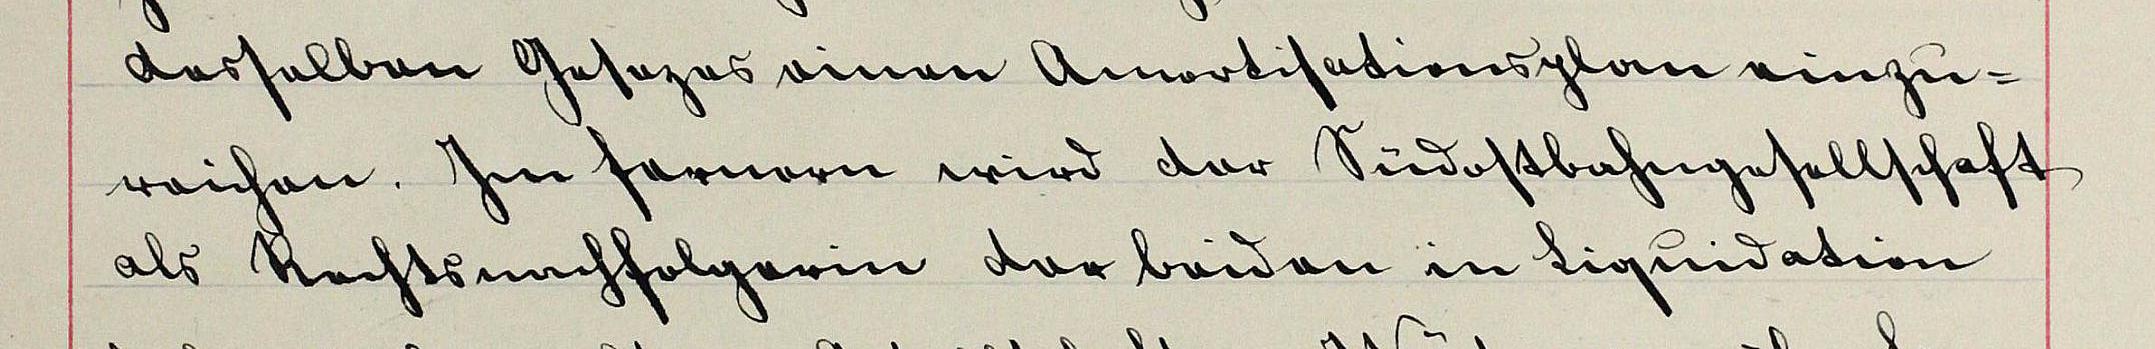 desselben Gesezes einen Amortisationsplan einzu=
reichen. Im fernern wird der Südostbahngesellschaft
als Rechtsnachfolgerin der beiden in Liquidation